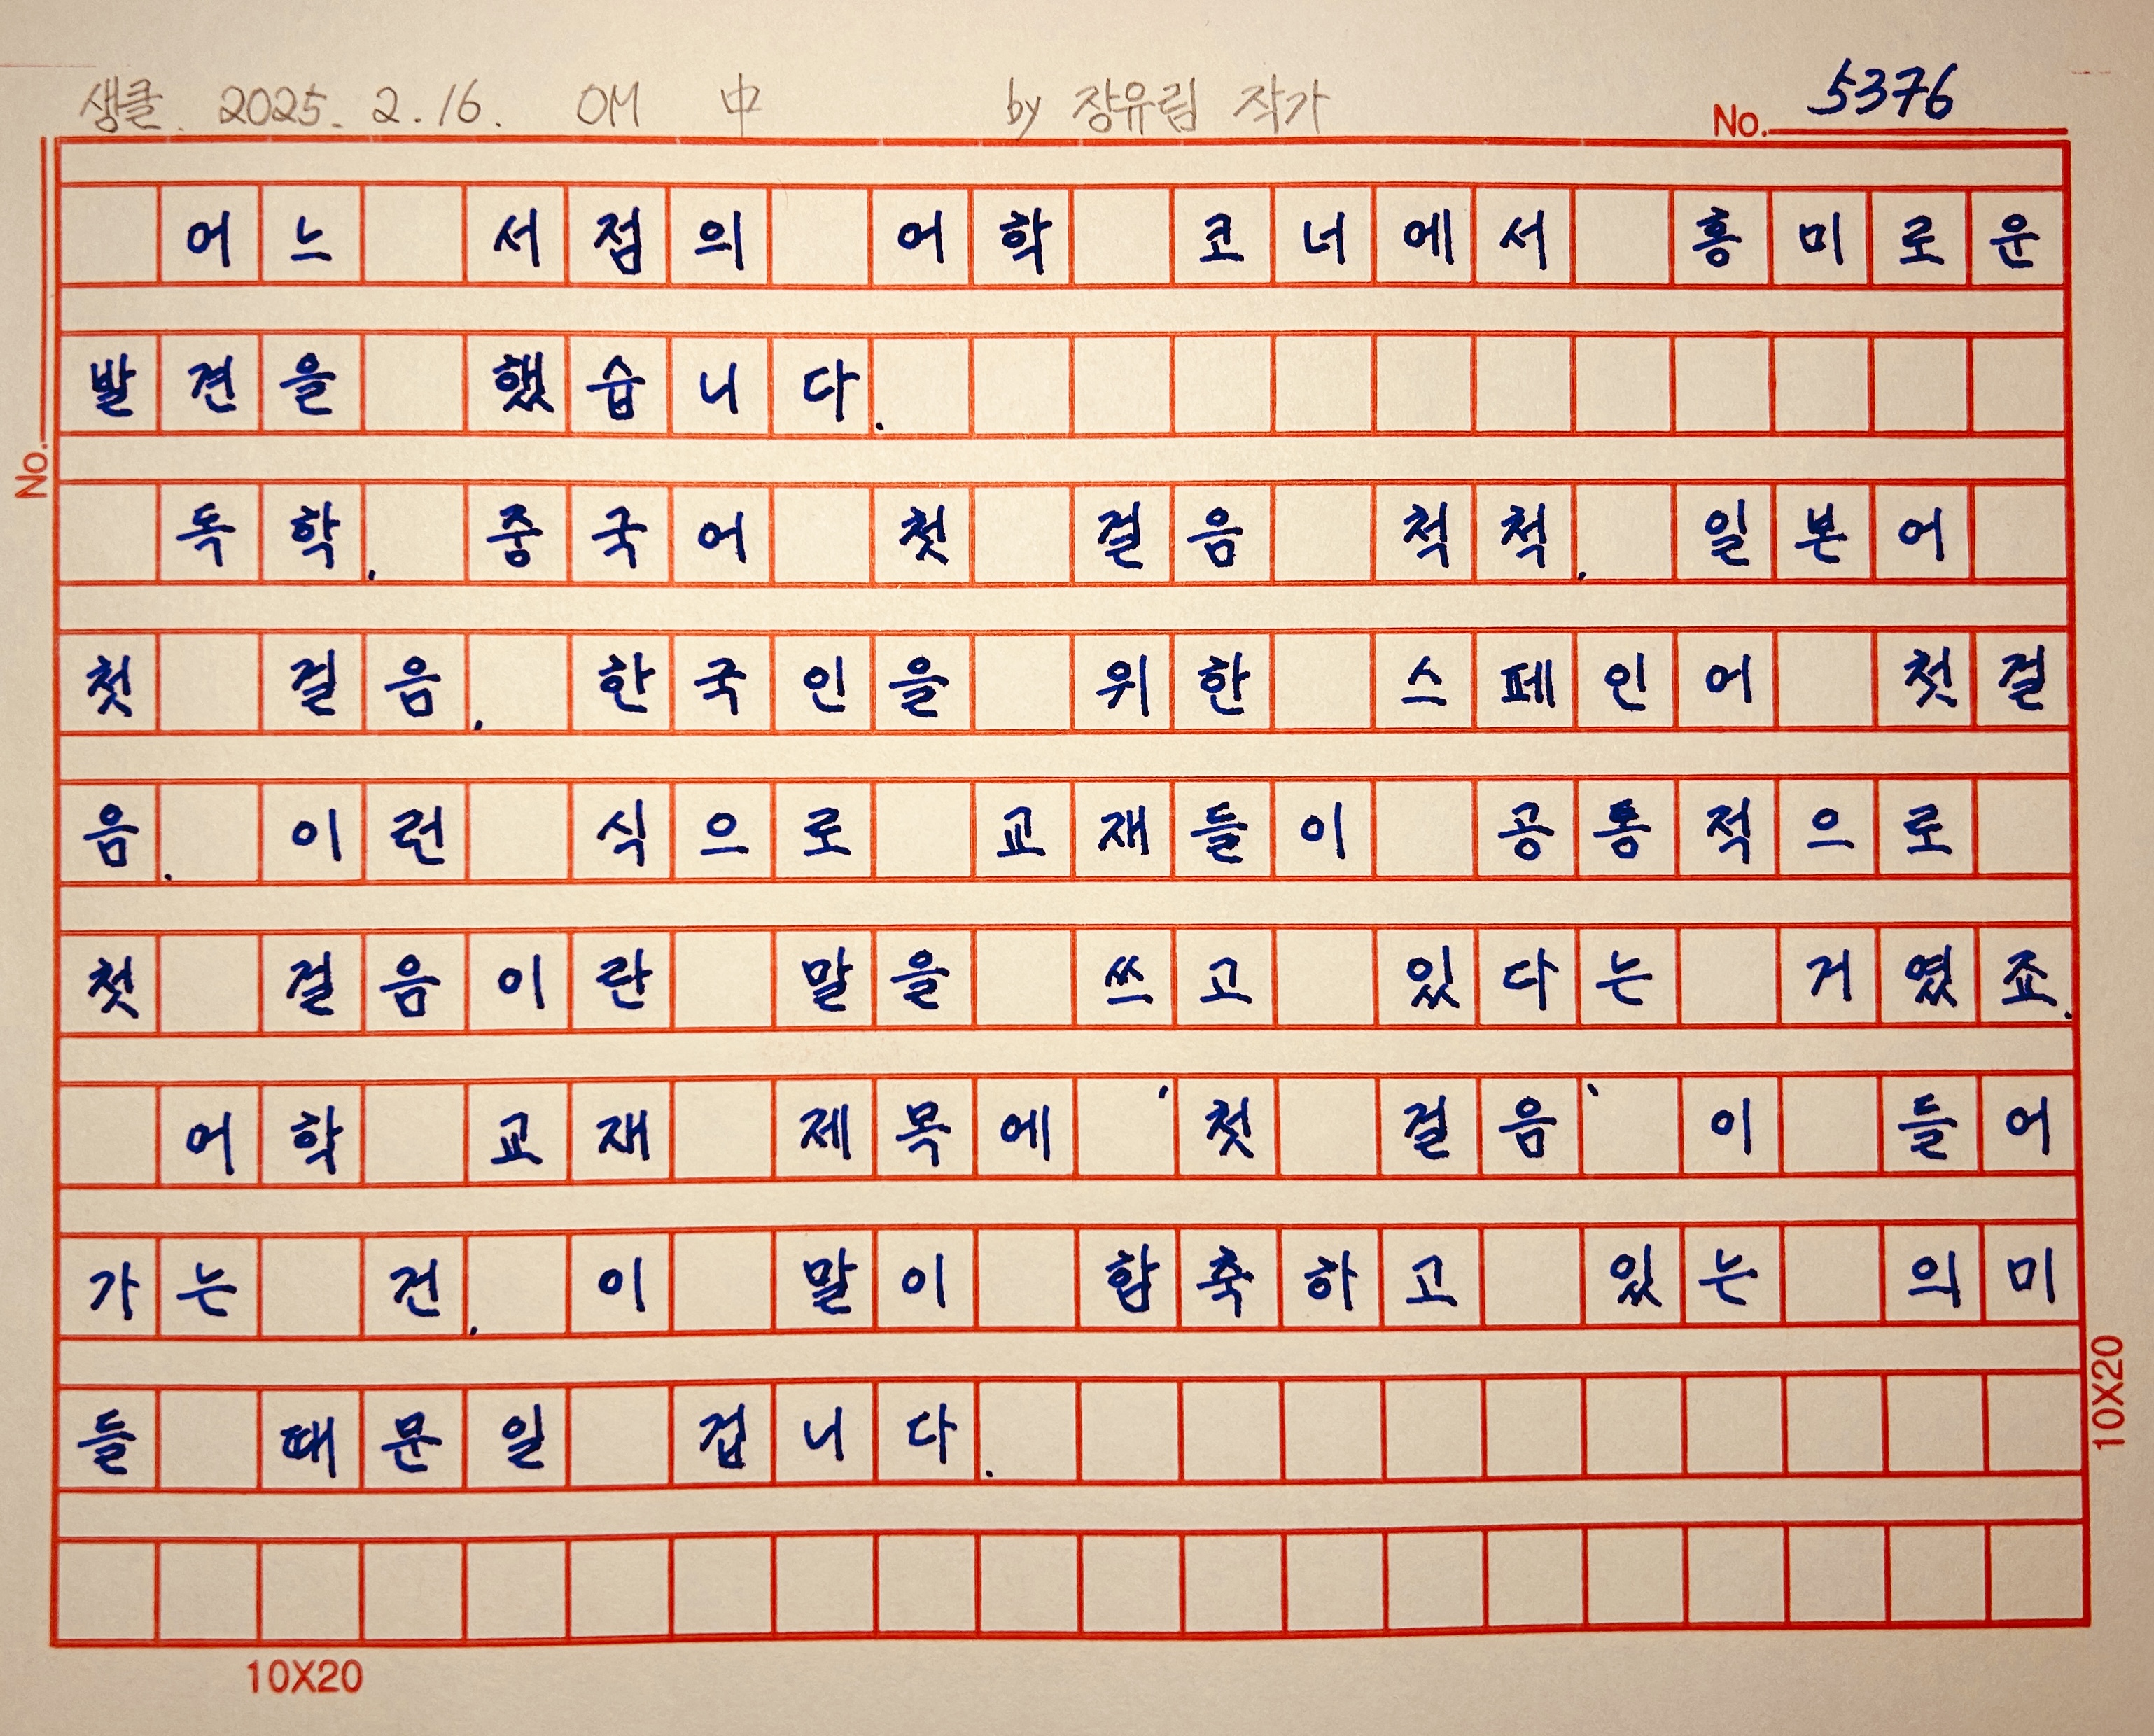 생클. 2025. 2. 16. OM 中 by 장유림 작가 No. 5376
어느 서점의 어학 코너에서 흥미로운
발견을 했습니다.
독학, 중국어 첫 걸음 척척, 일본어
첫 걸음, 한국인을 위한 스페인어 첫걸
음. 이런 식으로 교재들이 공통적으로
첫 걸음이란 말을 쓰고 있다는 거였죠.
어학 교재 제목에 '첫 걸음'이 들어
가는 건, 이 말이 함축하고 있는 의미
들 때문일 겁니다.
No.
10X20
10X20